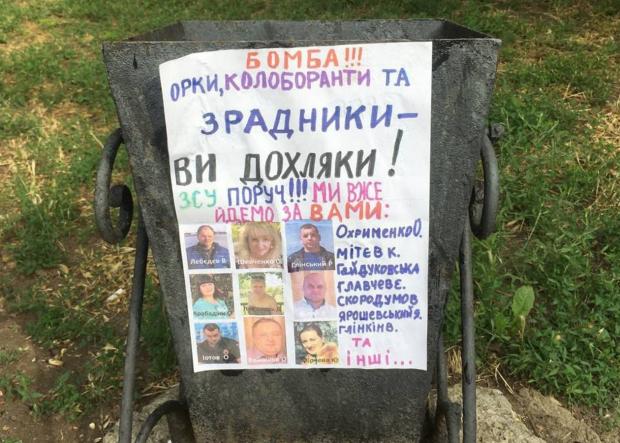 БОМБА!!!
ОРКИ, КОЛОБОРАНТИ ТА
ЗРАДНИКИ –
ВИ ДОХЛЯКИ!
ЗСУ ПОРУЧ!!! МИ ВЖЕ
ЙДЕМО ЗА ВАМИ:
Лебєдєв В
Шевченко О.
Глінський Р
О.
О
Ю
Іотов О
Охрименко О.
Мітєв К.
Гайдуковська
Главчев Є.
Скородумов
Ярошевський Я.
Глінкін В.
ТА
ІНШІ...